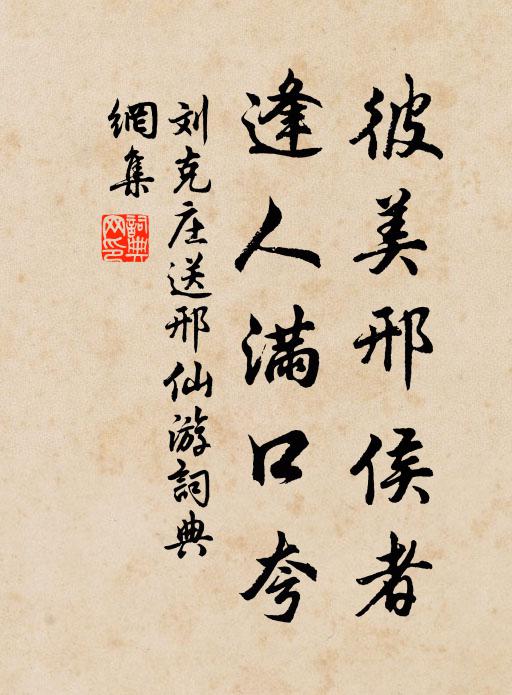 彼美邢侯者
逢人满口夸
刘克庄送邢仙游詞典
網集
詞典
网印